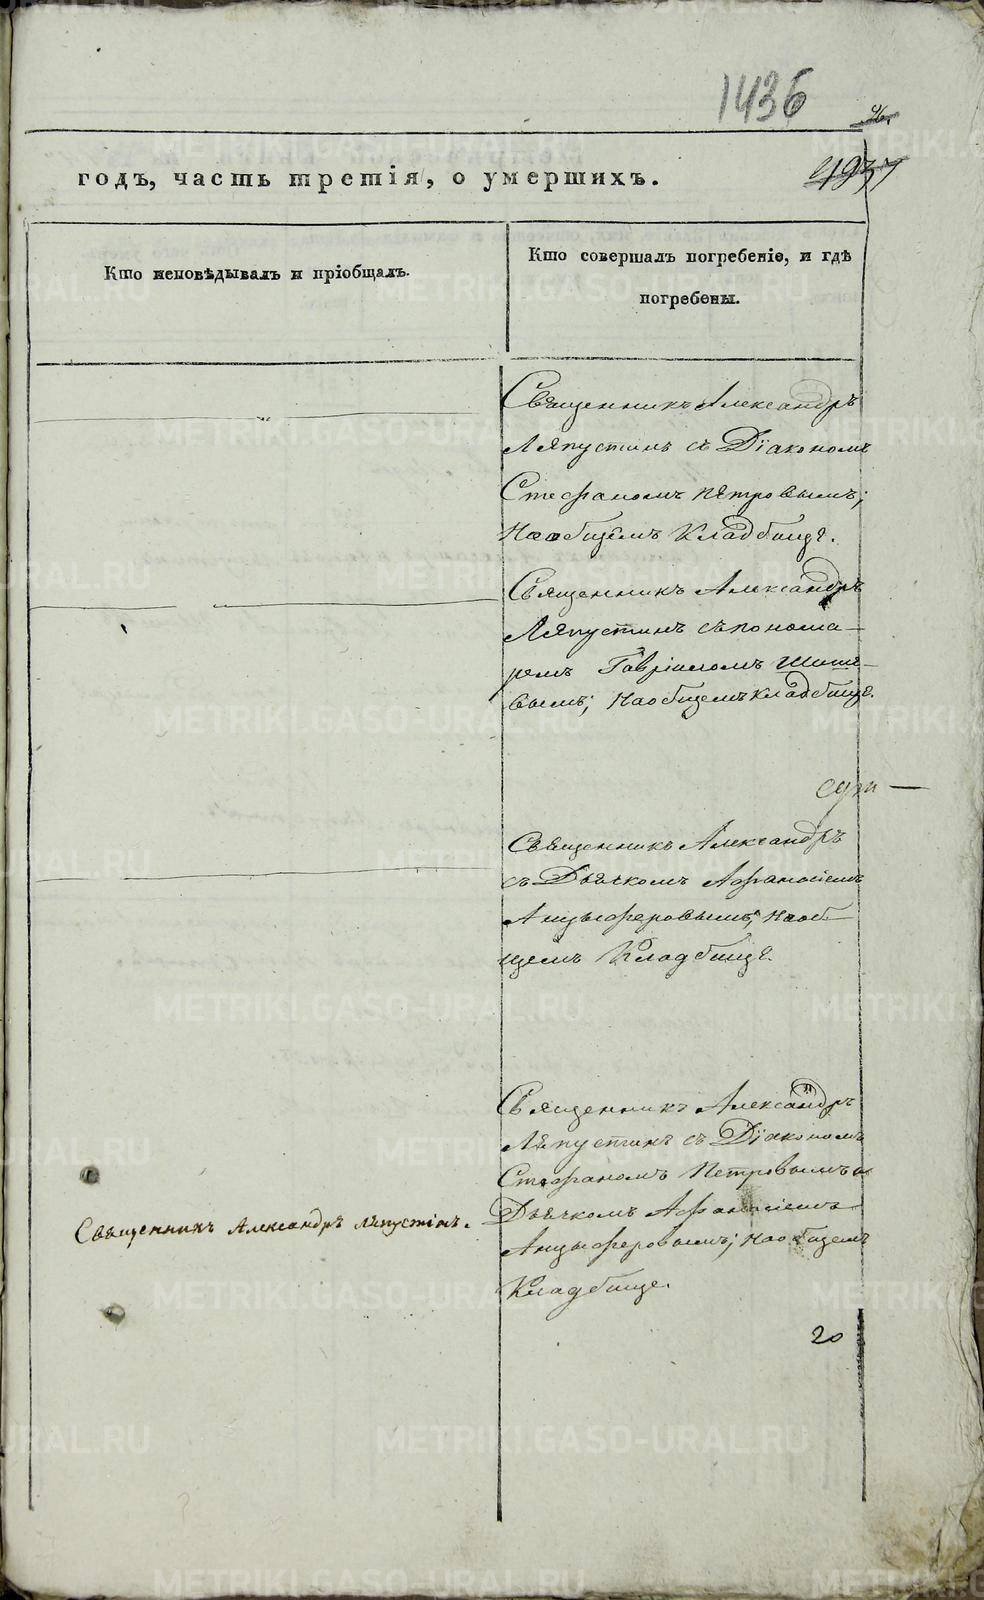 1436
годъ, часть третія, о умершихъ.
Кто исповѣдывалъ и пріобщалъ.
Кто совершалъ погребеніе, и гдѣ
погребены.
Священникъ Александръ
Ляпустинъ съ Діакономъ
Стефаномъ Петровымъ;
На общемъ Кладбище.
Священникъ Александръ
Ляпустинъ съ понома–
ремъ Гавріиломъ
вымъ; На общемъ кладбище.
Священникъ Александръ
съ Дьячкомъ Афанасіемъ
Анцыферовымъ, На об–
щемъ Кладбище.
Священникъ Александръ
Ляпустинъ съ Діакономъ
Стефаномъ Петровымъ и
Дьячкомъ Афанасіемъ
Священникъ Александръ Ляпустинъ.
Анцыферовымъ; На общемъ
Кладбище.
20
METRIKI.GASO-URAL.RU